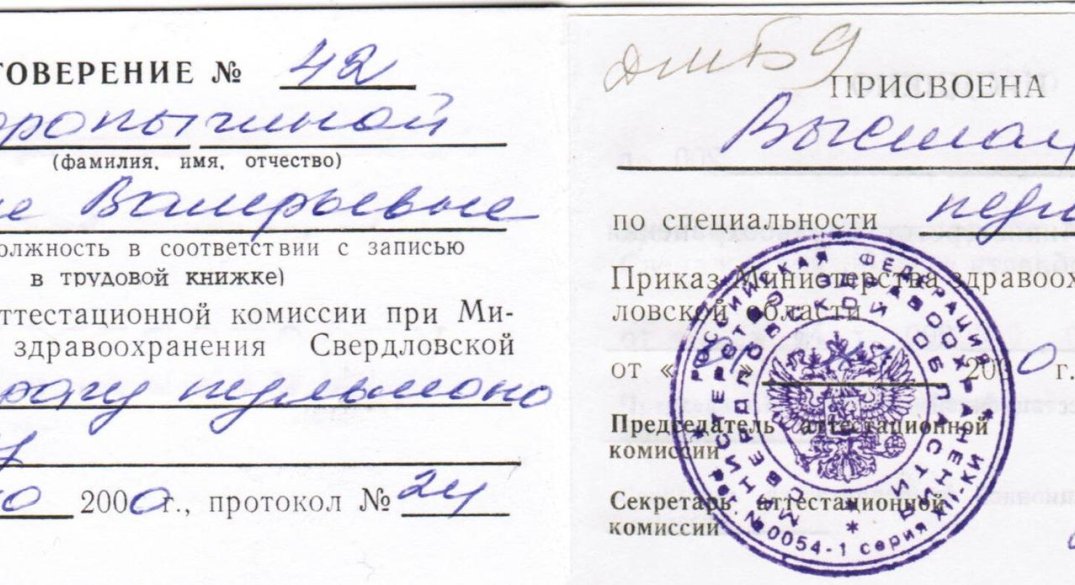 ТОВЕРЕНИЕ № 42
ропычиной
(фамилия, имя, отчество)
не Валерьевне
олжность в соответствии с записью
в трудовой книжке)
ттестационной комиссии при Ми-
здравоохранения Свердловской
рачу пульмоно
2000 г., протокол № 24
ПРИСВОЕНА
Высшая
по специальности
Приказ Министерства здравоох
ловской области
от « » 2000 г.
Председатель аттестационной
комиссии
Секретарь аттестационной
комиссии
РОССИЙСКАЯ ФЕДЕРАЦИЯ
МИНИСТЕРСТВО ЗДРАВООХРАНЕНИЯ
СВЕРДЛОВСКОЙ ОБЛАСТИ
№0054-1 серия